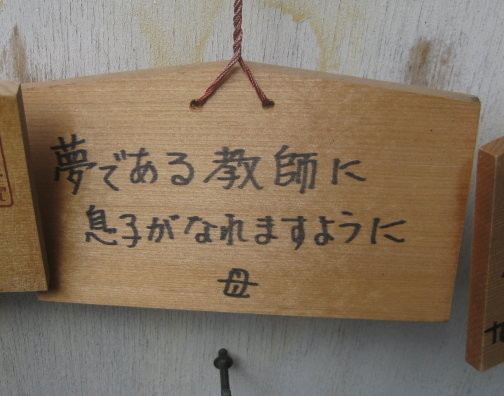 夢である教師に
息子がなれますように
母